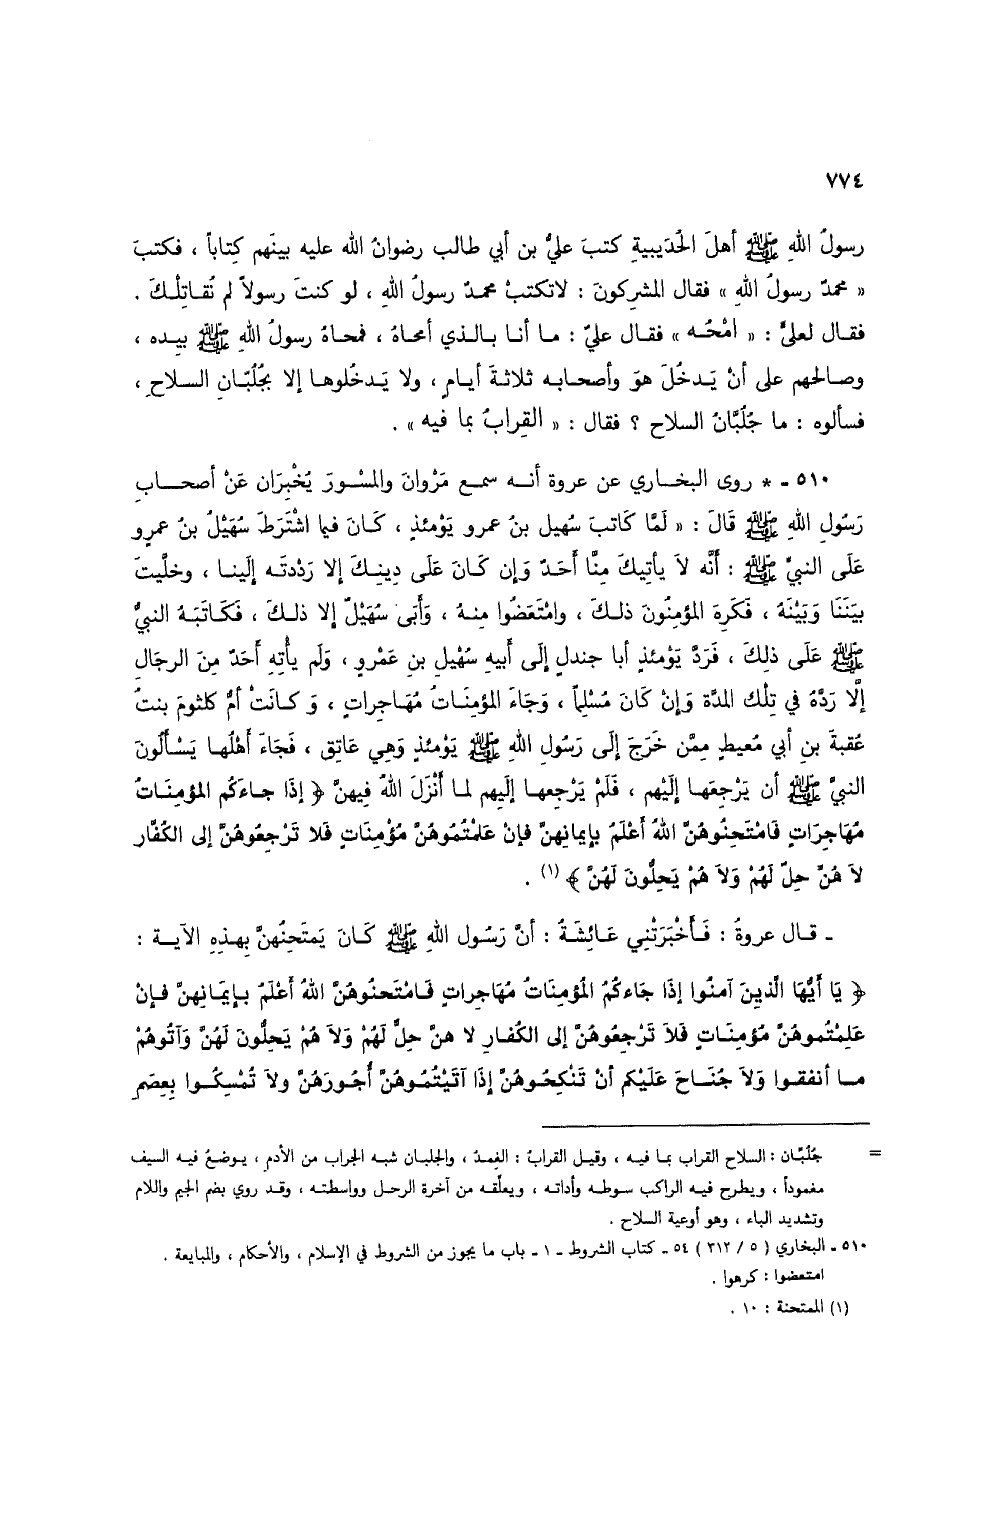 ٧٧٤
رسولُ اللهِ ﷺ أهلَ الحُدَيبيةِ كتبَ عليُّ بن أبي طالب رضوانُ الله عليه بينَهم كِتاباً ، فكتبَ
« محمدٌ رسولُ اللهِ » فقال المشركونَ : لاتكتبْ محمدٌ رسولُ اللهِ ، لو كنتَ رسولاً لم نُقـاتِلْـكَ .
فقـال لعليٍّ : « امْحُـه » فقـال عليٌ : مـا أنـا بـالـذي أمحـاهُ ، فمحـاهُ رسـولُ اللهِ ﷺ بيـده ،
وصـالحهم على أنْ يَـدخُـلَ هـوَ وأصحـابـه ثـلاثـةَ أيـامٍ ، ولا يَـدخُلـوهـا إلا بجُلُبّـانِ السـلاحِ ،
فسألوه : ما جُلُبَّانُ السلاح ؟ فقال : « القِرابُ بما فيه » .
٥١٠ - * روى البخـاري عن عروة أنـه سمـع مَرْوانَ والمِسْـورَ يُخْبِرَان عَنْ أصحـابِ
رَسُولِ اللهِ ﷺ قَالَ : « لَمَّا كَاتبَ سُهيل بنُ عمرو يَوْمئذٍ ، كَـانَ فيما اشْتَرَطَ سُهَيْلُ بنُ عمرٍو
عَلَى النبيِّ ﷺ : أَنَّه لاَ يأتِيكَ مِنَّا أَحَدٌ وَإن كَـانَ عَلَى دِينِـكَ إلا رَدْدتَـه إلَينـا ، وخلَّيتَ
بَينَنَا وَبَيْنَهُ ، فَكَرِهَ المؤمِنُونَ ذلـكَ ، وامْتَعَضُوا مِنـهُ ، وَأَبَى سُهَيْلٌ إلا ذلـكَ ، فَكَـاتَبَـهُ النبيُّ
ﷺ عَلَى ذلِكَ ، فَرَدَّ يَوْمئذٍ أبا جندلٍ إلَى أَبيهِ سُهَيْلِ بنِ عَمْرٍو ، وَلَم يأْتِهِ أَحَدٌ مِنَ الرجَالِ
إلَّا رَدَّهُ في تِلْك المدَّة وَإنْ كَانَ مُسْلِماً ، وَجَاءَ المؤمِنَـاتُ مُهَـاجراتٍ ، وَ كـانَتْ أمُّ كلثومَ بنتُ
عُقبةَ بنِ أبي مُعيطٍ مِمَّن خَرَجَ إلَى رَسُولِ اللهِ ﷺ يَوْمئذٍ وَهِي عَاتِق ، فَجَاءَ أَهْلُهـا يَسْـأَلُونَ
النبيَّ ﷺ أن يَرْجِعَهـا إلَيْهِم ، فَلَمْ يَرْجِعهـا إلَيهم لمـا أَنْزَلَ اللهُ فِيهنَّ ﴿ إذَا جـاءَكُم المؤمِنَـاتُ
مُهَاجِرَاتٍ فَامْتَحِنُوهُنَّ اللهُ أَعْلَمُ بإيمانِهنَّ فإنْ عَلمْتُمُوهُنَّ مُؤْمِنَاتٍ فَلا تَرْجِعُوهُنَّ إلى الكُفَّارِ
لاَ هُنَّ حِلٌّ لَهُمْ وَلاَ هُمْ يَحِلُّونَ لَهُنَّ ﴾ (١) .
ـ قـال عروةُ : فَـأَخْبَرَتْنِي عَـائِشَـةُ : أنَّ رَسُولَ اللهِ ﷺ كَـانَ يَمتَحِنُهنَّ بِهـذِهِ الآيـة :
﴿ يَا أَيُّهَا الَّذينَ آمنُوا إذَا جَاءكُمُ المُؤمِنَاتُ مُهَاجراتٍ فَـامْتَحنُوهُنَّ اللهُ أَعْلَمُ بـإيمَـانِهنَّ فـإنْ
عَلِمْتُموهُنَّ مُؤمِنَـاتٍ فَلاَ تَرْجِعُوهُنَّ إلى الكُفـارِ لا هنَّ حِلٌّ لَهُمْ وَلاَ هُمْ يَحِلُّونَ لَهُنَّ وَآتُوهُمْ
مـا أنفقـوا وَلاَ جُنَـاحَ عَلَيْكم أنْ تَنْكِحُـوهُنَّ إذَا آتَيْتُمُـوهُنَّ أُجُـورَهُنَّ ولاَ تُمْسِكُـوا بِعِصَمِ
= جُلُبّان : السلاح القراب بما فيه ، وقيل القرابُ : الغِمدُ ، والجلبان شبه الجراب من الأدم ، يـوضعُ فيـه السيف
مغموداً ، ويطرح فيـه الراكب سوطـه وأداتـه ، ويعلّقـه من آخرة الرحـل وواسطتـه ، وقـد روي بضم الجيم واللام
وتشديد الباء ، وهو أوعية السلاح .
٥١٠ - البخاري ( ٥ / ٣١٢ ) ٥٤ - كتاب الشروط - ١ - باب ما يجوز من الشروط في الإسلام ، والأحكام ، والمبايعة .
امتعضوا : كرهوا .
(١) الممتحنة : ١٠ .